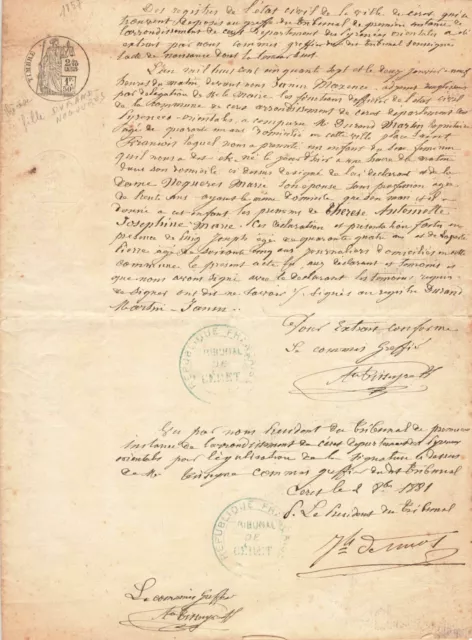 1857
TIMBRE
Fille Durand
Noguères
Des registres de l'état civil de la ville de Ceret, qui
trouvent déposés au greffe du tribunal de première instance de
l'arrondissement de Ceret département des pyrénées orientales a été
extrait par nous commis greffier du tribunal soussigné
l'acte de naissance dont la teneur suit
L'an mil huit cent cinquante sept et le deux janvier neuf
heures du matin devant nous Janer adjoint
par délégation de M. le Maire, les fonctions d'officier de l'état civil
de la commune de Ceret arrondissement de Ceret département des
pyrénées-orientales, a comparu M. Durand Martin
âgé de quarante un ans domicilié en cette ville place
lequel nous a présenté un enfant du sexe féminin
qu'il nous a dit être né le jour d'hier à une heure du matin
dans son domicile ci dessus désigné de lui déclarant et de la
Dame Noguères Marie son épouse sans profession âgée
de trente ans ayant le même domicile que son mari et il
donné à cet enfant les prénoms de Thérèse Antoinette
Joséphine Marie. Ces déclaration et présentation faites en
présence de Joseph âgé de quarante quatre ans et de
Pierre âgé de soixante cinq ans journaliers domiciliés en cette
commune le présent acte lu aux déclarant et témoins et
que nous avons signé avec le déclarant les témoins requis
de signer ont dit ne savoir. Signés au registre Durand
Martin Janer
Pour Extrait conforme
Le commis Greffier
REPUBLIQUE FRANÇAISE
TRIBUNAL
DE
CÉRET
Vu par nous Président du tribunal de première
instance de l'arrondissement de Ceret département des pyrénées
orientales pour légalisation de la signature ci dessus
de Mr commis greffier du dit tribunal
Ceret le 8bre 1881
P. Le Président du tribunal
REPUBLIQUE FRANÇAISE
TRIBUNAL
DE
CÉRET
Le commis Greffier